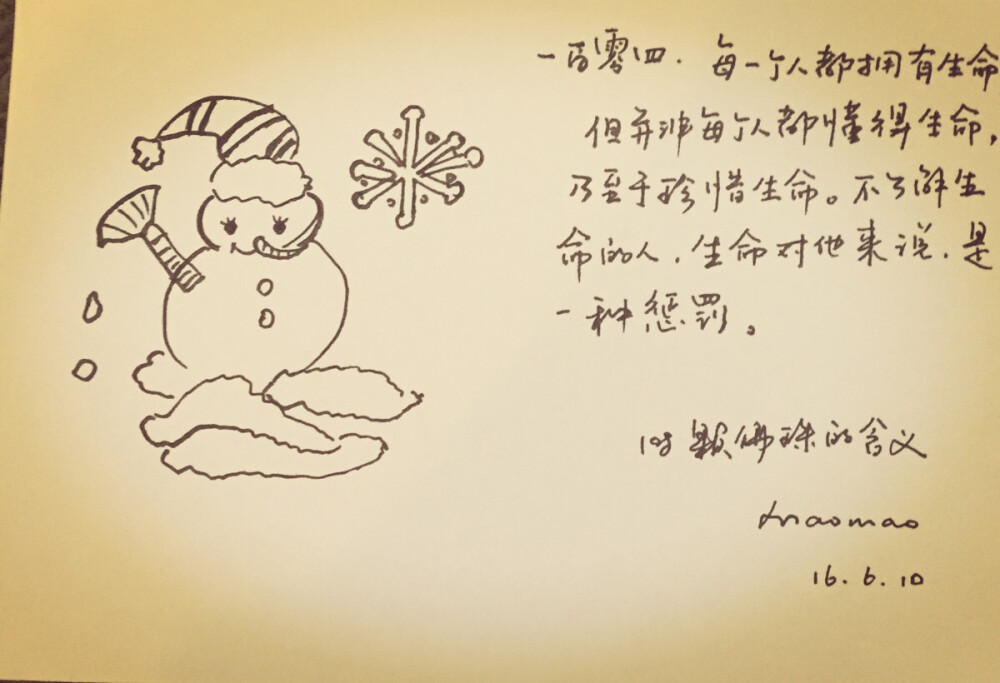 一百零四. 每一个人都拥有生命
但并非每个人都懂得生命,
乃至于珍惜生命。不了解生
命的人,生命对他来说,是
一种惩罚。
108颗佛珠的含义
maomao
16.6.10